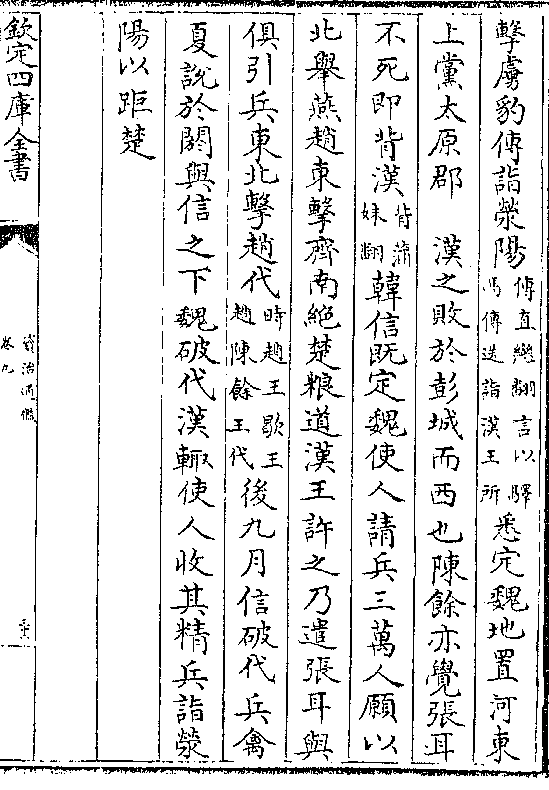 擊虜豹傳詣滎陽傳直戀翻言以驛馬傳送詣漢王所悉定魏地置河東
上黨太原郡　漢之敗於彭城而西也陳餘亦覺張耳
不死即背漢背蒲妹翻韓信既定魏使人請兵三萬人願以
北舉燕趙東擊齊南絕楚糧道漢王許之乃遣張耳與
俱引兵東北擊趙代時趙王歇王趙陳餘王代後九月信破代兵禽
夏說於閼與信之下魏破代漢輙使人收其精兵詣滎
陽以距楚
欽定四庫全書
資治通鑑
卷九